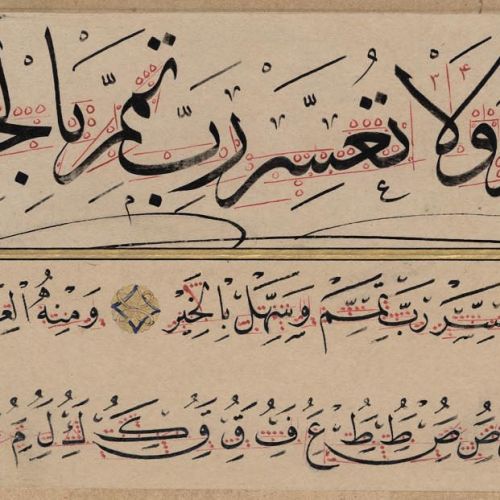 ولا تعسّر ربّ تمّم بالخ
سّر ربّ تمّم وسهّل بالخير ومنه الع
ص ط ط ع ف ق ق ك ك ل م